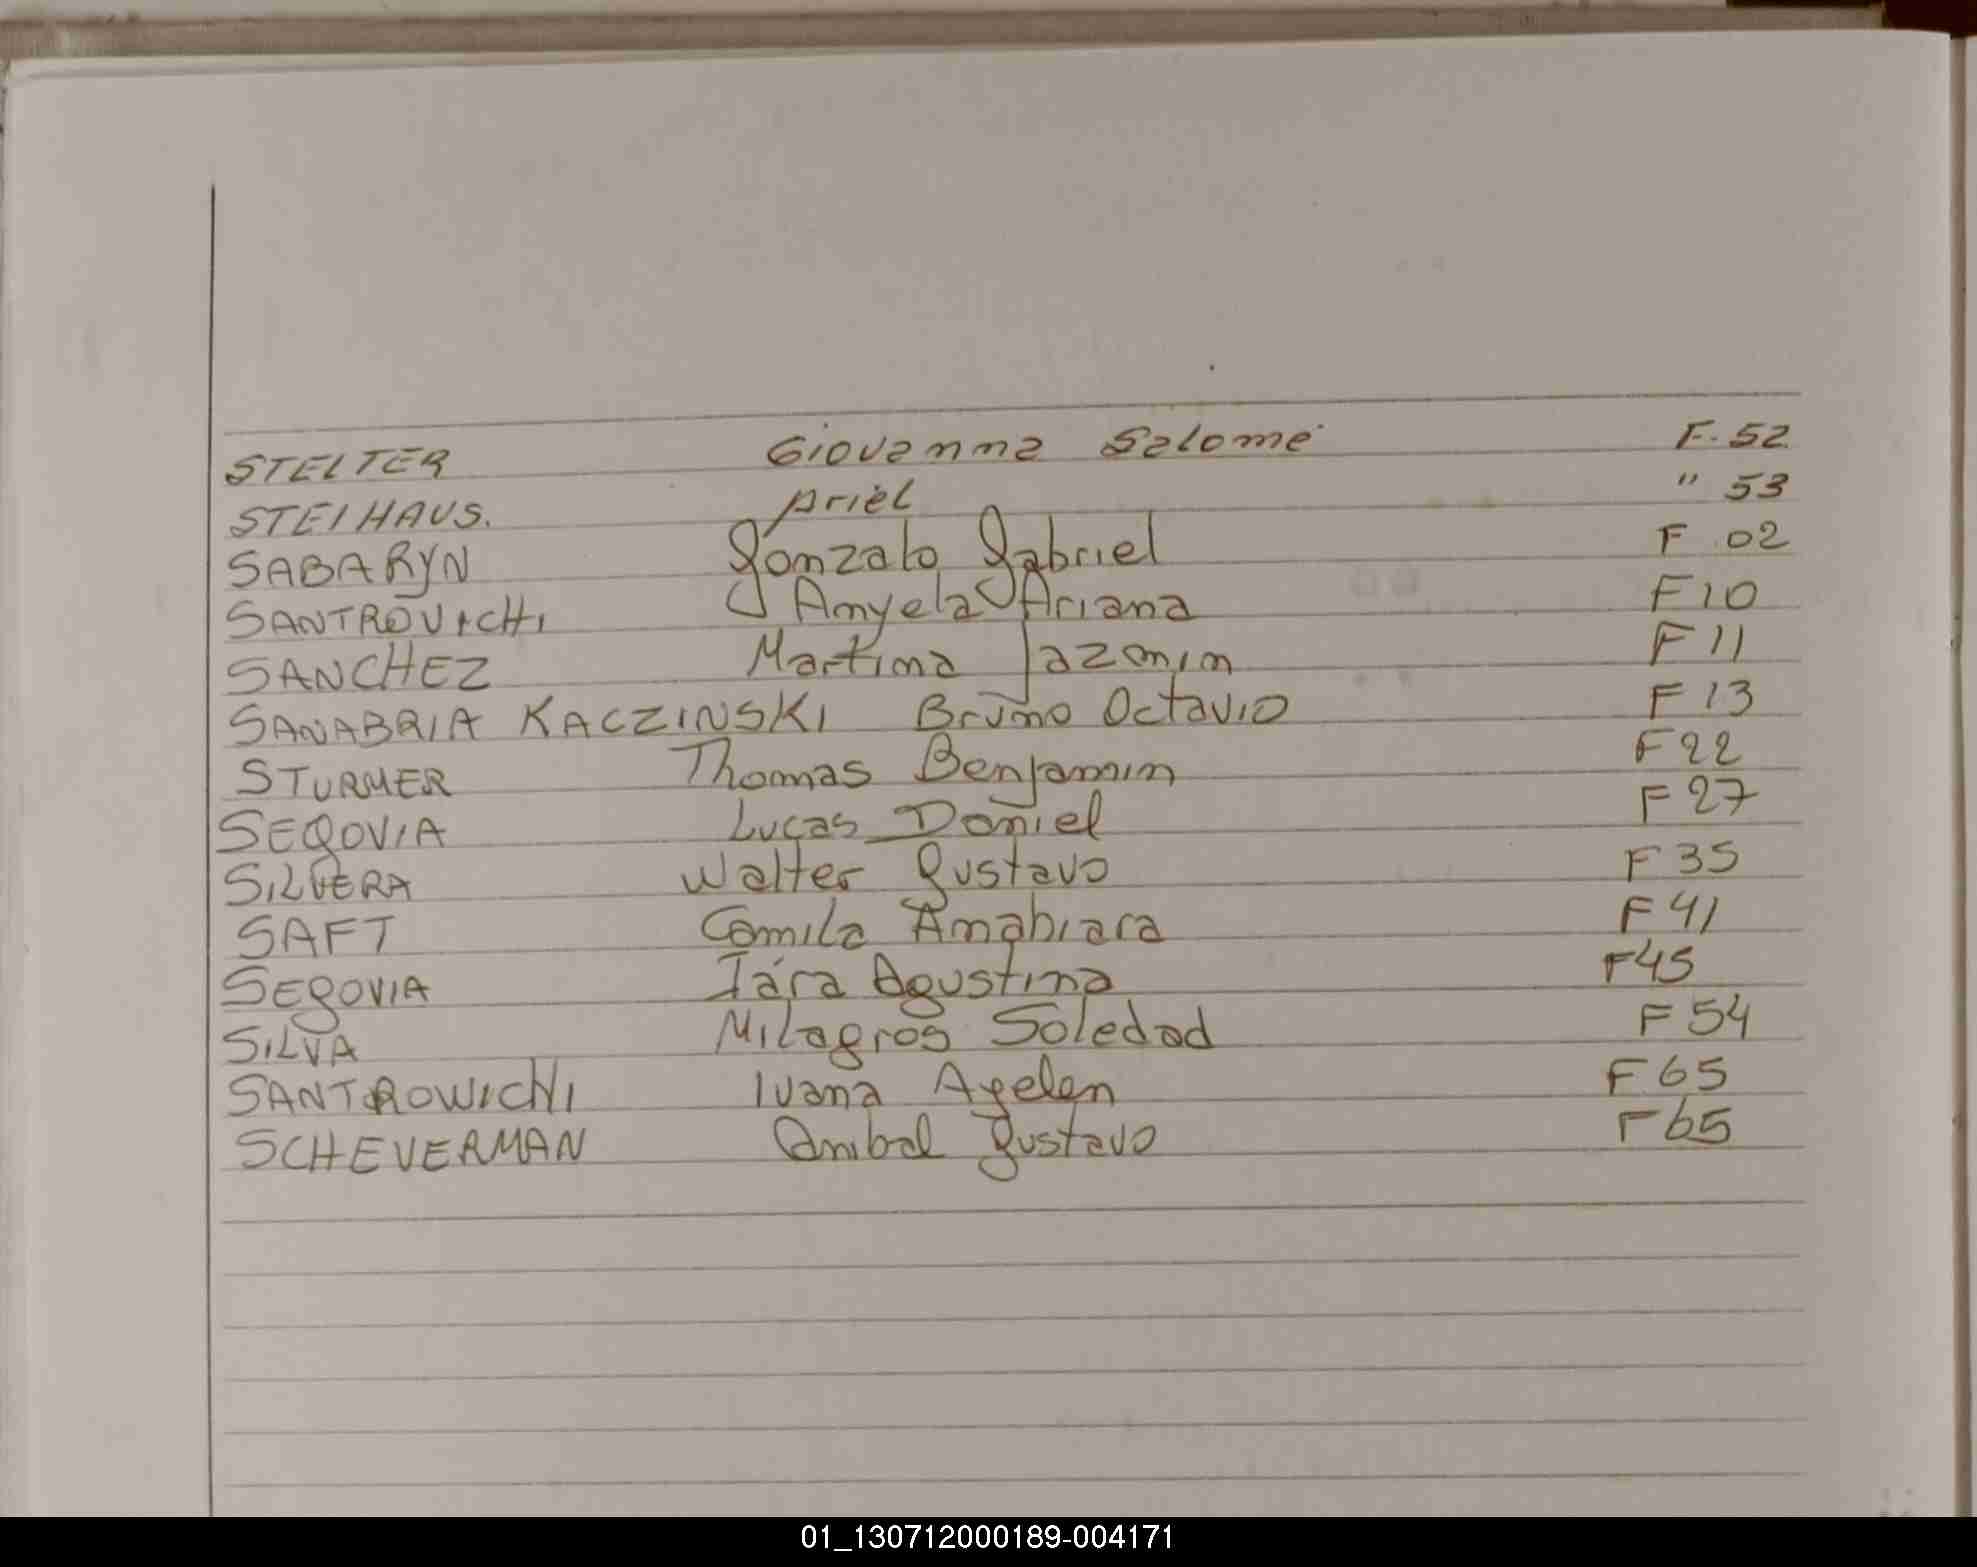 STELTER Giovanna Salomé F. 52
STEIHAUS. Ariel " 53
SABARYN Gonzalo Gabriel F 02
SANTROVICHI Anyela Ariana F10
SANCHEZ Martina Jazmin F 11
SANABRIA KACZINSKI Bruno Octavio F 13
STURMER Thomas Benjamin F 22
SEGOVIA Lucas Daniel F 27
SILVERA Walter Gustavo F 35
SAFT Camila Anabiara F 41
SEGOVIA Iára Agustina F45
SILVA Milagros Soledad F 54
SANTROWICHI Ivana Ayelen F 65
SCHEVERMAN Anibal Gustavo F 65
01_130712000189-004171